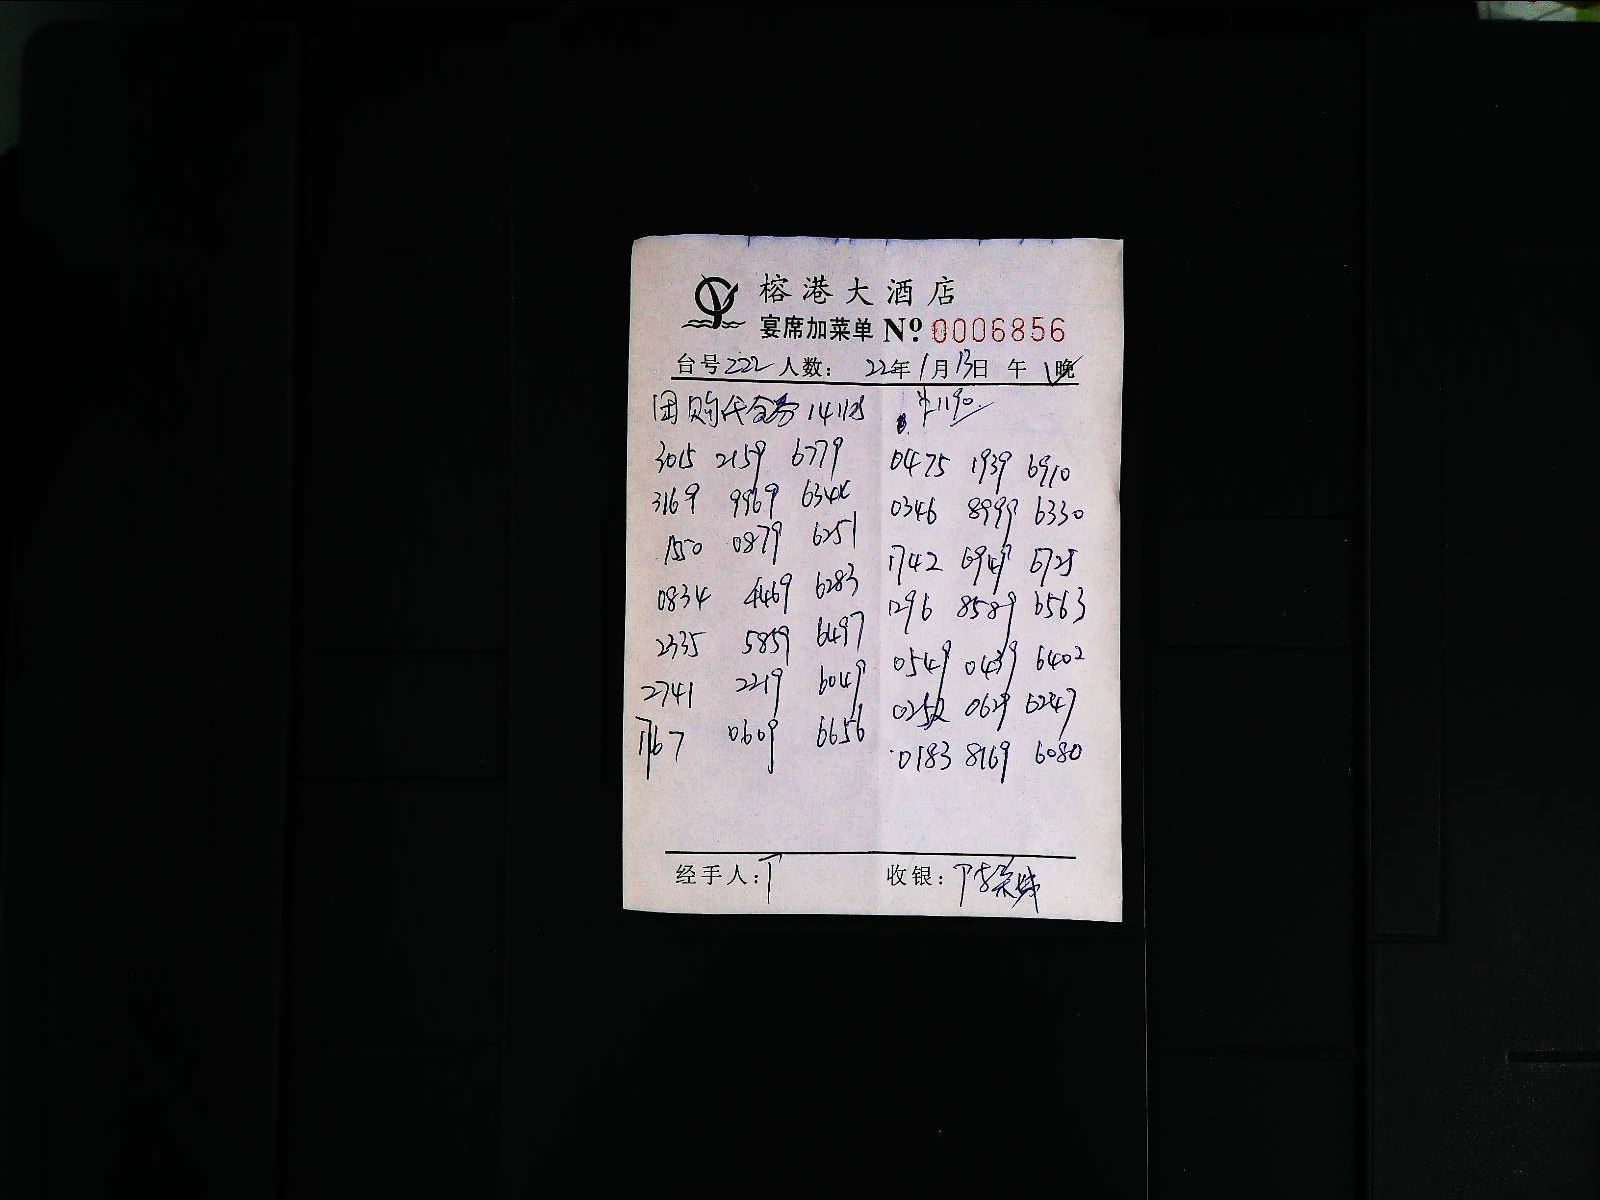 榕港大酒店
宴席加菜单 Nº 0006856
台号 222 人数： 22年 1月 13日 午 晚
团购代金券 14张 ¥1190
3015 2159 6779
3169 9969 6344
1550 0879 6251
0834 4469 6283
2335 5859 6497
2741 2219 6049
1767 0609 6656
0475 1939 6910
0346 8999 6330
1742 6949 6725
1296 8589 6563
0549 0439 6402
0252 0629 6247
0183 8169 6080
经手人： 收银：